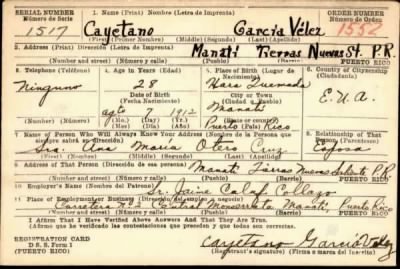 SERIAL NUMBER
Número de Serie
1517
1. Name (Print) / Nombre (Letra de Imprenta)
Cayetano García Vélez
(First) (Primer Nombre) (Middle) (Segundo) (Last) (Apellido)
ORDER NUMBER
Número de Orden
1552
2. Address (Print) / Dirección (Letra de Imprenta)
Manatí Tierras Nuevas St. P.R.
(Number and street) (Número y calle) (Town) (Pueblo) (Barrio) PUERTO RICO
3. Telephone (Teléfono)
Ninguno
4. Age in Years (Edad)
28
Date of Birth
(Fecha Nacimiento)
agto 7 1912
5. Place of Birth (Lugar de Nacimiento)
City or Town
(Ciudad o Pueblo)
Manatí
(State or country)
Puerto Rico
6. Country of Citizenship
(Ciudadanía)
E.U.A.
7. Name of Person Who Will Always Know Your Address (Nombre de la Persona que siempre sabrá su dirección)
Ana María Otero Cruz
(First) (Primer Nombre) (Middle) (Segundo) (Last) (Apellido)
8. Relationship of That Person (Parentesco)
Esposa
9. Address of That Person (Dirección de esa persona)
Manatí P.R.
(Number and street) (Número y calle) (Town) (Pueblo) (Barrio) PUERTO RICO
10. Employer's Name (Nombre del Patrono)
Sr. Jaime Calaf Collazo
11. Place of Employment or Business (Dirección del empleo o negocio)
Carretera No 2 Central Monserrate Manatí, Puerto Rico
(Number and street) (Número y calle) (Town) (Pueblo) (Barrio) PUERTO RICO
I Affirm That I Have Verified Above Answers And That They Are True.
Afirmo que he verificado las contestaciones que preceden y que todas son correctas.
REGISTRATION CARD
D. S. S. Form 1
Cayetano García Vélez
(Registrant's signature) (Firma o marca del inscrito)